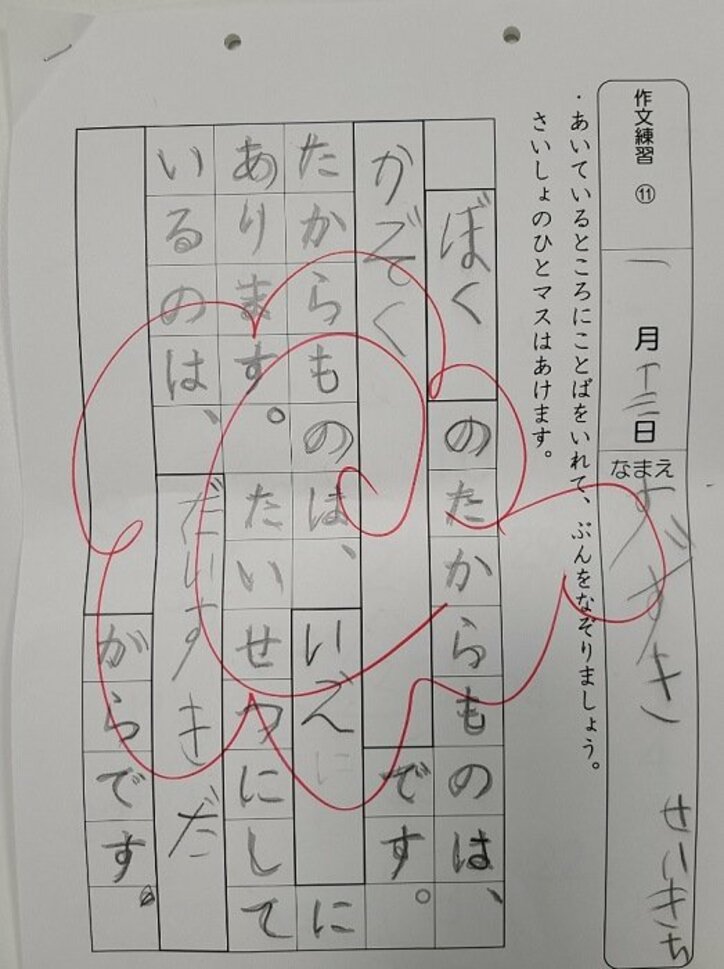 作文練習 ⑪
一月十三日
なまえ すずき せいきち
・あいているところにことばをいれて、ぶんをなぞりましょう。
さいしょのひとマスはあけます。
ぼくのたからものは、
かぞくです。
たからものは、いえに
あります。たいせつにして
いるのは、だいすきだ
からです。